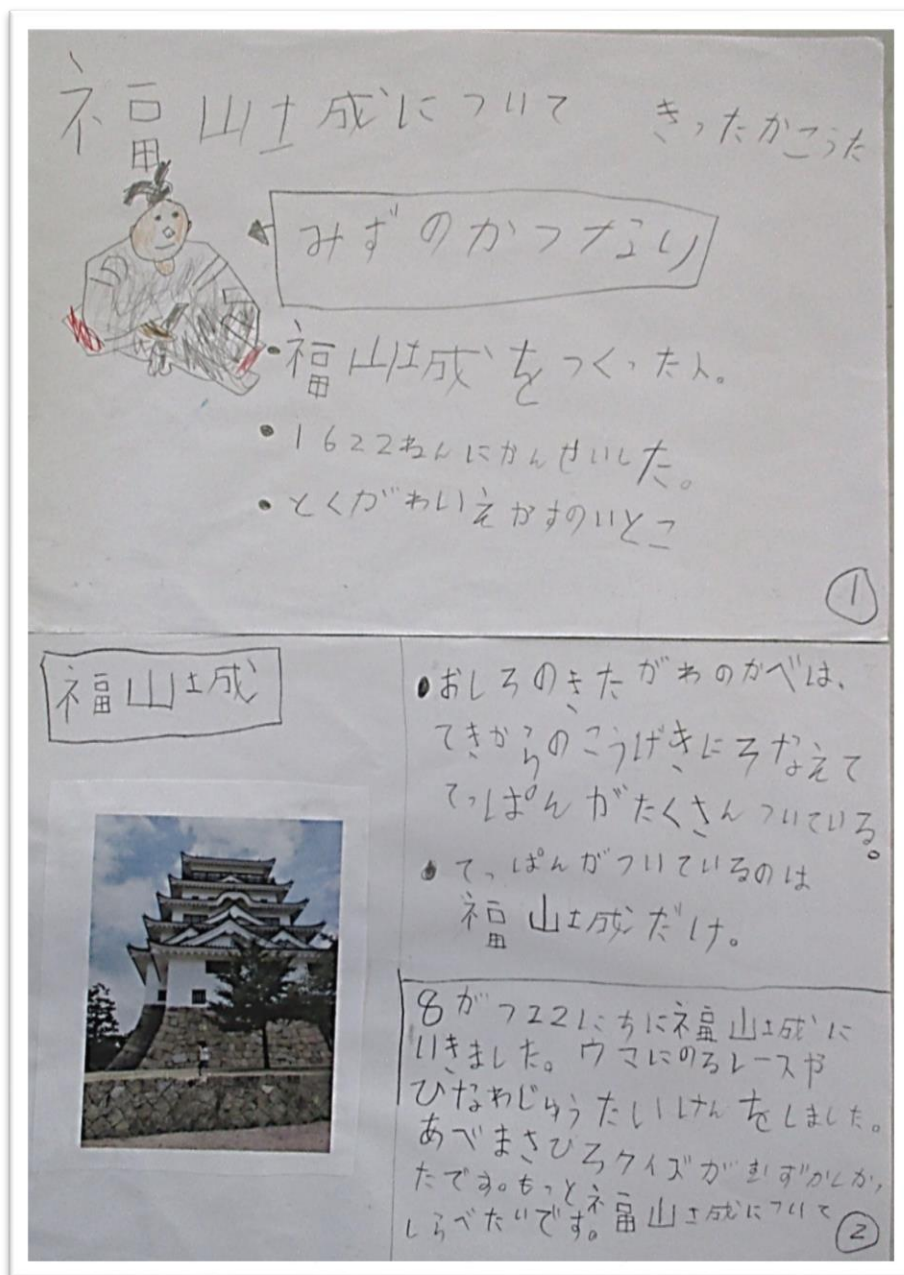 福山城について
きったかこうた
みずのかつなり
・福山城をつくった人。
・1622ねんにかんせいした。
・とくがわいえやすのいとこ
①
福山城
・おしろのきたがわのかべは、
てきからのこうげきにそなえて
てっぱんがたくさんついている。
・てっぱんがついているのは
福山城だけ。
8がつ22にちに福山城に
いきました。ウマにのるレースや
ひなわじゅうたいけんをしました。
あべまさひろクイズがむずかしかっ
たです。もっと福山城について
しらべたいです。
②